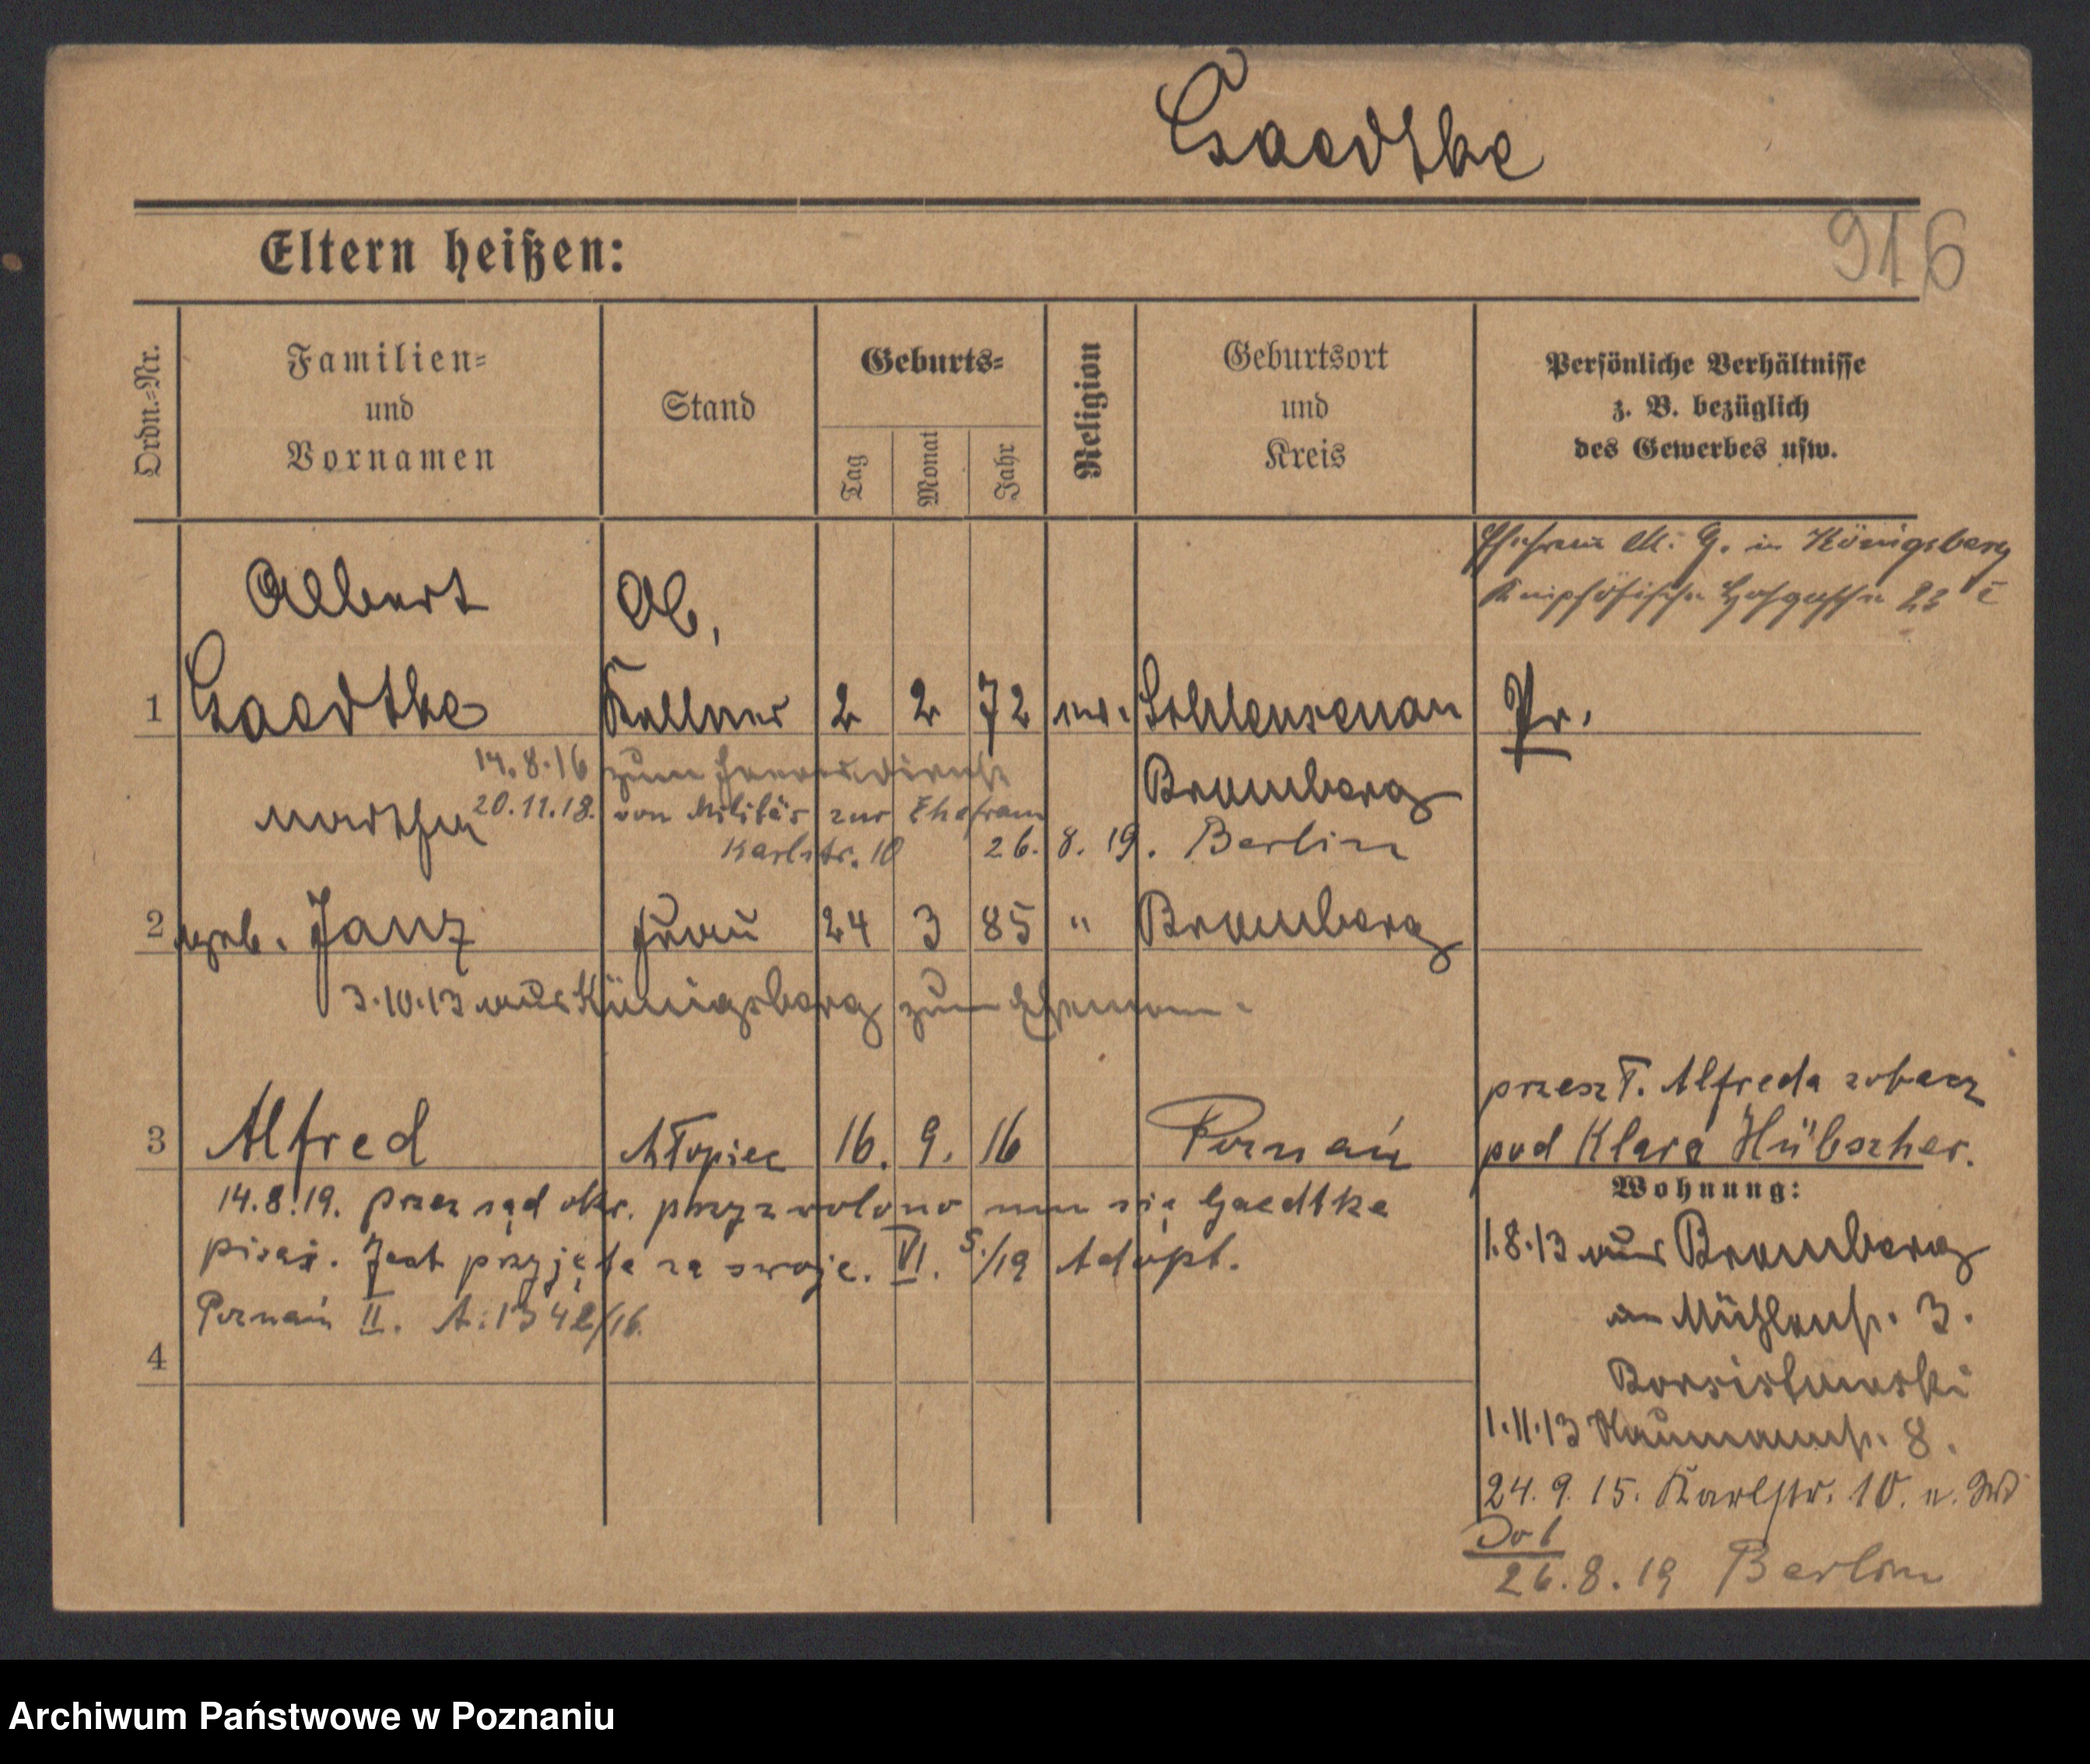 Gaedtke
916
Eltern heißen:
Ordn.-Nr.
Familien-
und
Vornamen
Stand
Geburts-
Tag
Monat
Jahr
Religion
Geburtsort
und
Kreis
Persönliche Verhältnisse
z. B. bezüglich
des Gewerbes usw.
Ehefrau M. G. in Königsberg
Kneiphöfische Hofgasse 23
Albert
Ob,
1 Gaedtke Kellner 2 2 72 ev. Schleusenau Pr.
14.8.16 zum Heeresdienst
Bromberg
Martha 20.11.18. von Militär zur Ehefrau
Karlstr. 10 26. 8. 19. Berlin
2 geb. Janz Frau 24 3 85 " Bromberg
3.10.13 aus Königsberg zum Ehemann.
3 Alfred chłopiec 16. 9. 16 Poznań
przeszł. Alfreda zobacz
pod Klara Hübscher.
14.8.19. przez sąd okr. przyzwolono mu się Gaedtke
pisać. Jest przyjęte za swoje. VI. 5./19 Adopt.
Poznań II. A: 1342/16.
4
Wohnung:
1.8.13 aus Bromberg
in Mühlenstr. 3.
1.11.13 Naumannstr. 8.
24. 9. 15. Karlstr. 10.
26.8.19 Berlin
Archiwum Państwowe w Poznaniu